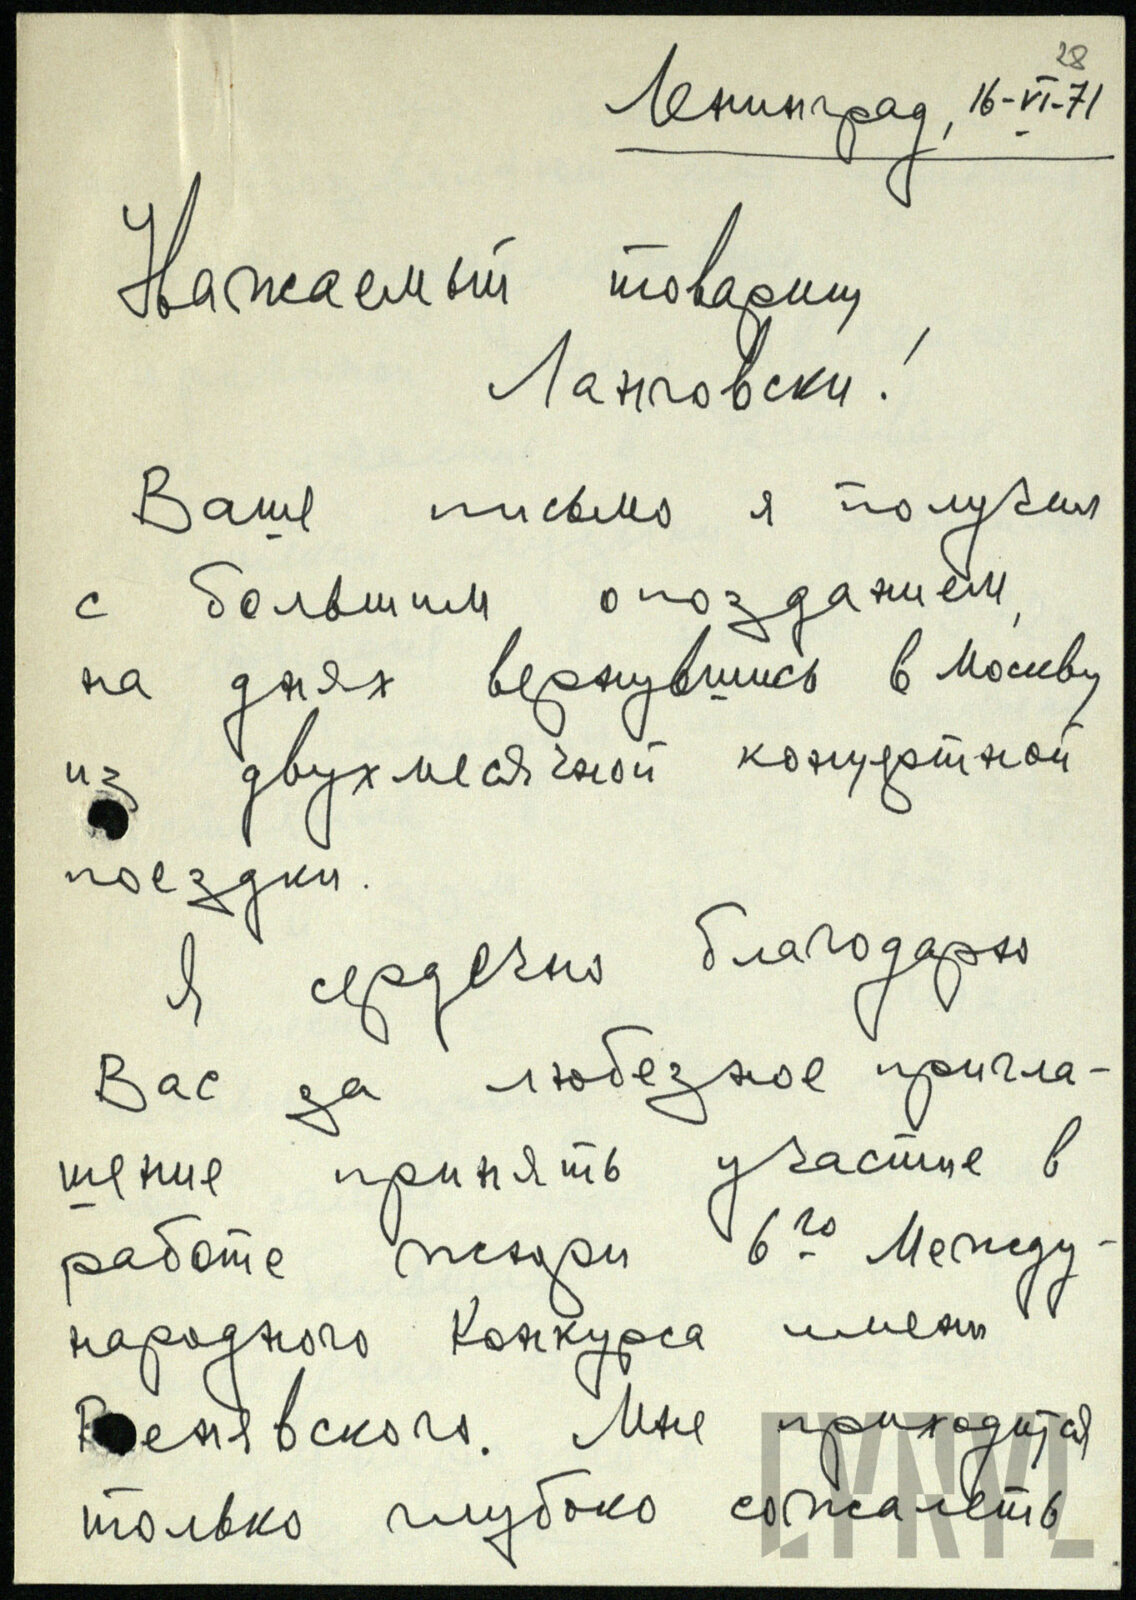 28
Ленинград, 16-VI-71
Уважаемый товарищ
Ланговски!
Ваше письмо я получил
с большим опозданием,
на днях вернувшись в Москву
из двухмесячной концертной
поездки.
Я сердечно благодарю
Вас за любезное пригла-
шение принять участие в
работе жюри 6го Между-
народного Конкурса имени
Венявского. Мне приходится
только глубоко сожалеть